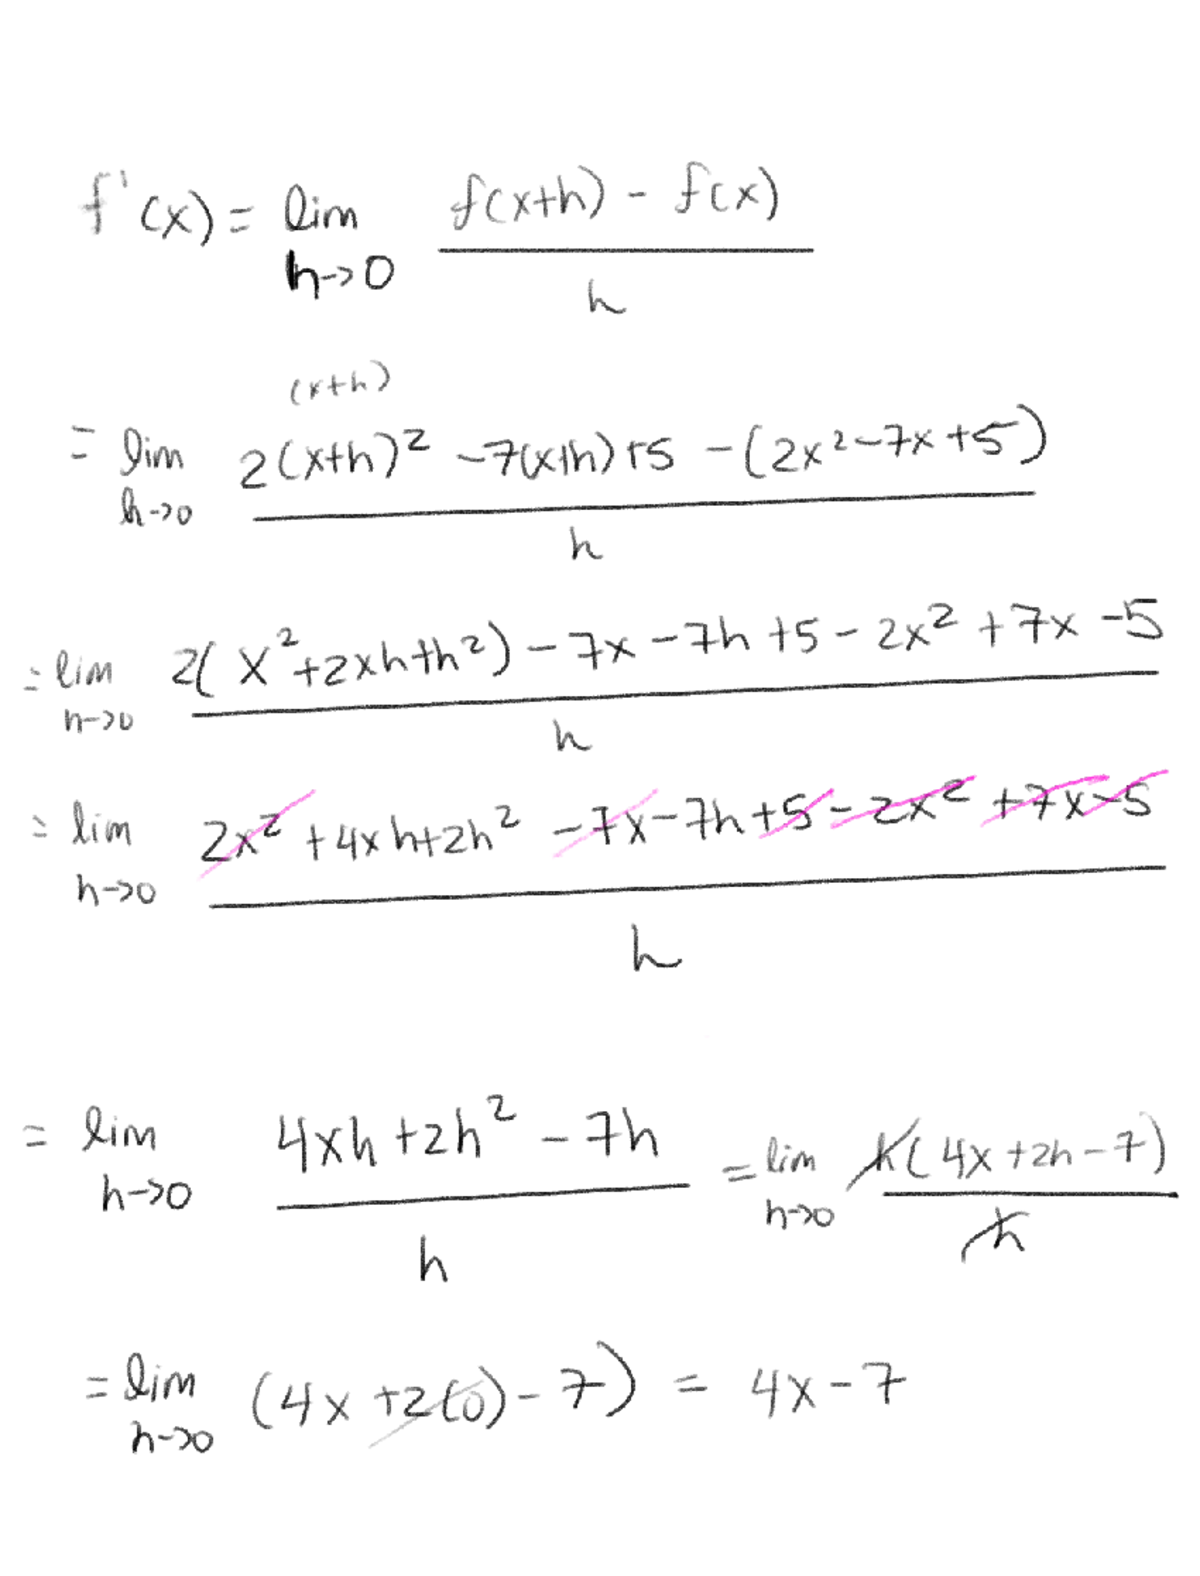 f'(x) = lim h→0 (f(x+h) - f(x)) / h
(x+h)
= lim h→0 (2(x+h)² -7(x+h)+5 -(2x²-7x+5)) / h
= lim h→0 (2(x²+2xh+h²) -7x -7h +5 - 2x² +7x -5) / h
= lim h→0 (2x² +4xh+2h² -7x-7h+5-2x² +7x-5) / h
= lim h→0 (4xh +2h² -7h) / h = lim h→0 h(4x+2h-7) / h
= lim h→0 (4x +2(0)-7) = 4x-7